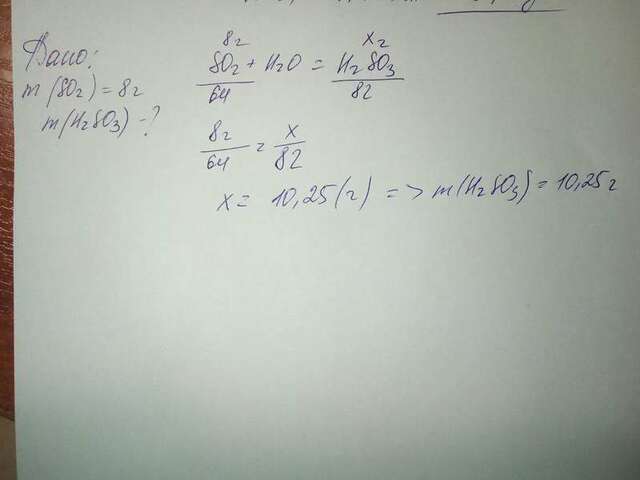 Дано:
m(SO2) = 8г
m(H2SO3) - ?
8г xг
SO2 + H2O = H2SO3
64 82
8г/64 = x/82
x = 10,25(г) => m(H2SO3) = 10,25г